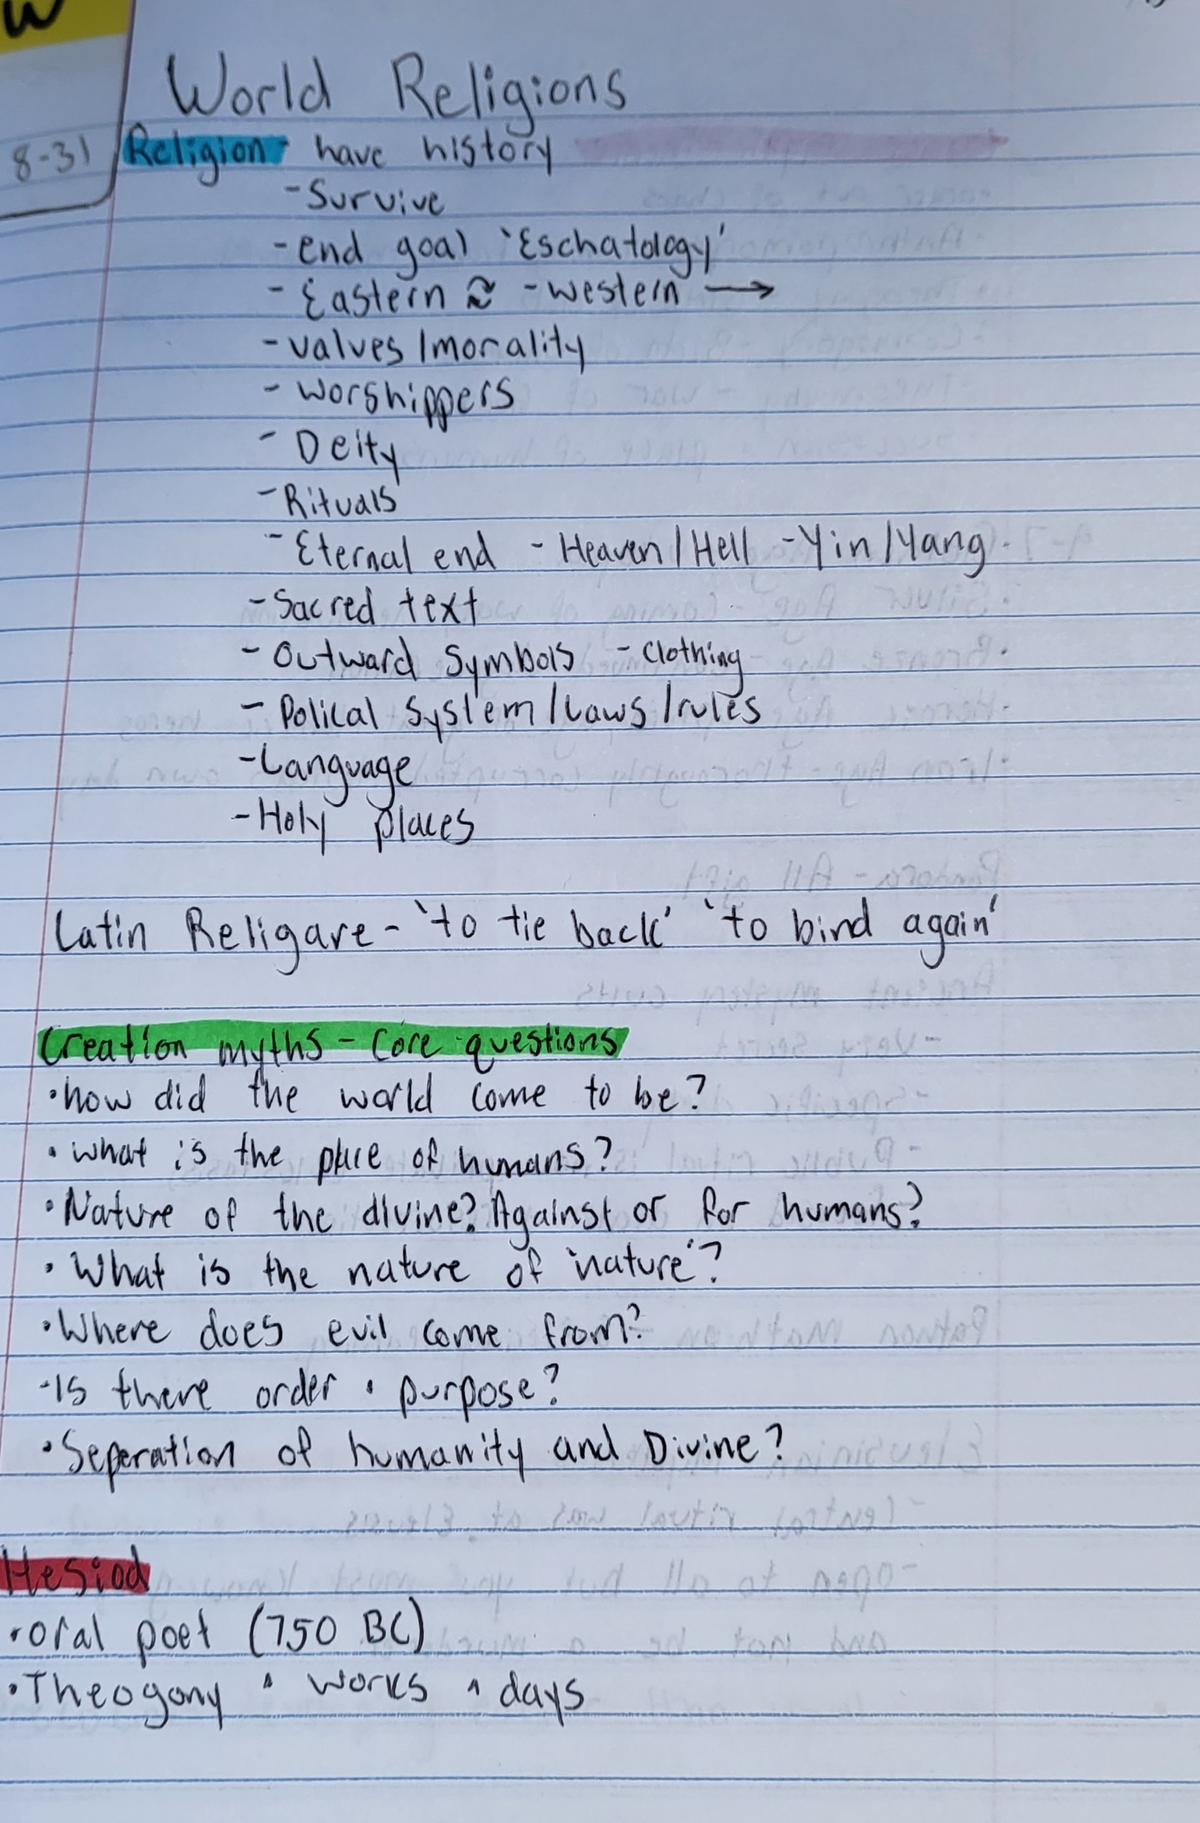 W
World Religions
8-31 Religion - have history
- Survive
- end goal 'Eschatology'
- Eastern - western →
- values/morality
- Worshippers
- Deity
- Rituals
- Eternal end - Heaven/Hell - Yin/Yang
- Sacred text
- Outward Symbols - clothing
- Polical System/Laws/rules
- Language
- Holy places
Latin Religare - 'to tie back' 'to bind again'
Creation myths - Core questions
• how did the world come to be?
• what is the place of humans?
• Nature of the divine? Against or for humans?
• What is the nature of 'nature'?
• Where does evil come from?
• Is there order • purpose?
• Seperation of humanity and Divine?
Hesiod
• oral poet (750 BC)
• Theogony ^ works ^ days